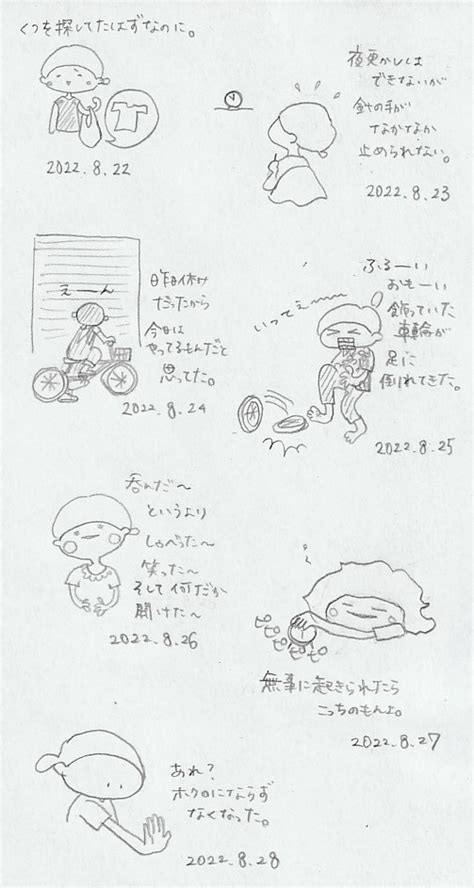 くつを探してたはずなのに。
2022.8.22
夜更かしは
できないが
針の手が
なかなか
止められない。
2022.8.23
えーん
昨日休み
だったから
今日は
やってるもんだと
思ってた。
2022.8.24
いってえ〜
ふるーい
おもーい
飾っていた
車輪が
足に
倒れてきた。
2022.8.25
呑んだ〜
というより
しゃべった〜
笑った〜
そして何だか
開けた〜
2022.8.26
ピピピピ
無事に起きられたら
こっちのもんよ。
2022.8.27
あれ?
ホクロにならず
なくなった。
2022.8.28